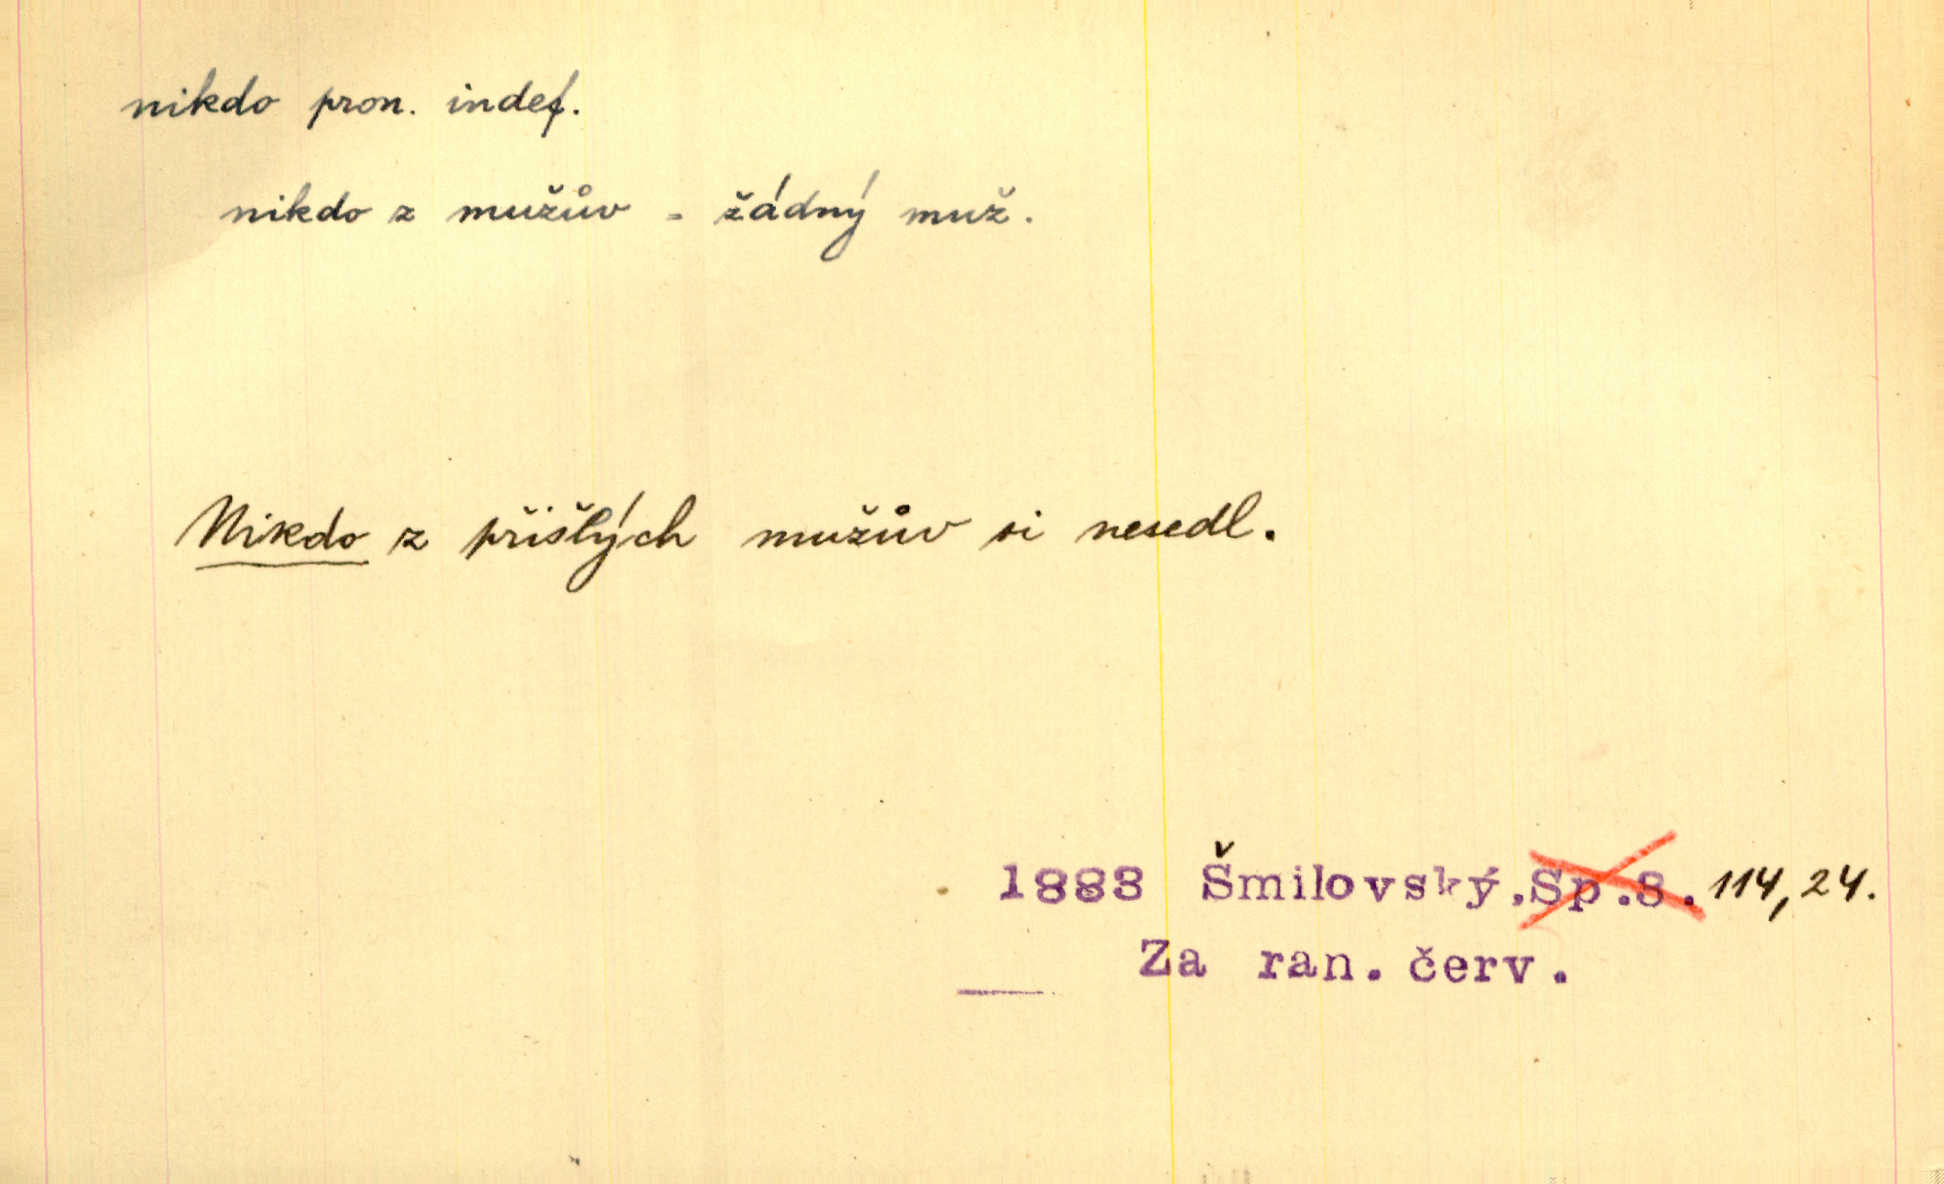 nikdo pron. indef.
nikdo z mužův = žádný muž.
Nikdo z přišlých mužův si nesedl.
1883 Šmilovský.Sp.8. 114,24.
Za ran. červ.